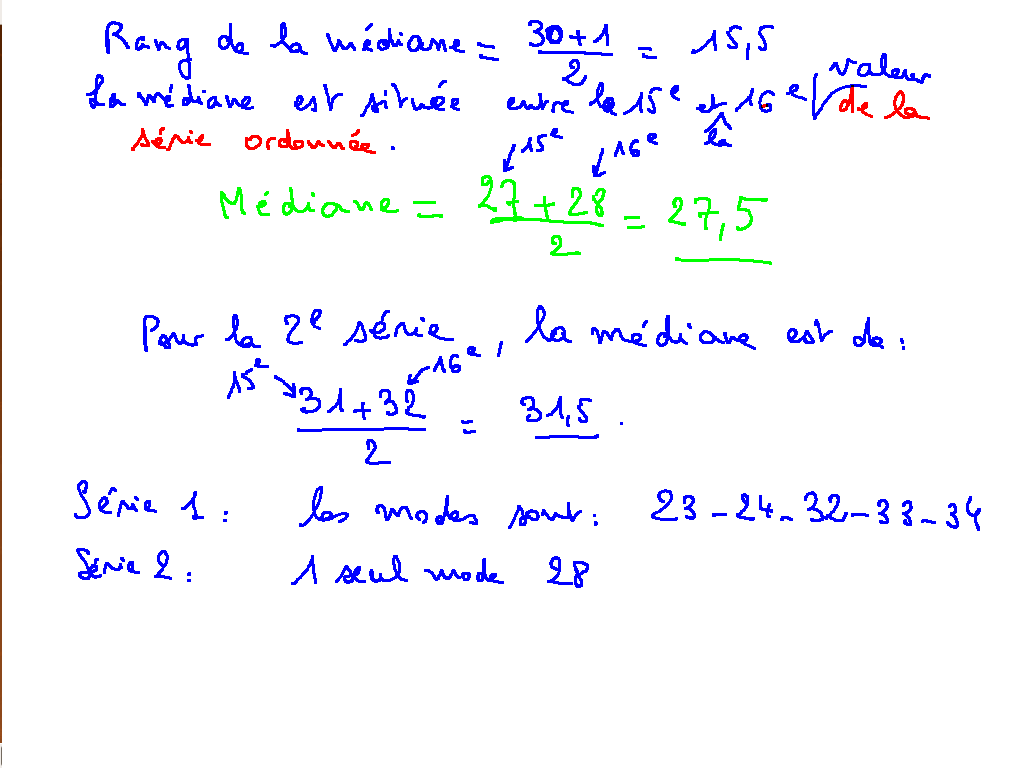 Rang de la médiane = 30+1 / 2 = 15,5
La médiane est située entre la 15e et la 16e valeur de la
série ordonnée.
15e 16e
Médiane = 27 + 28 / 2 = 27,5
Pour la 2e série, la médiane est de :
15e 16e
31 + 32 / 2 = 31,5.
Série 1 : les modes sont : 23 - 24 - 32 - 33 - 34
Série 2 : 1 seul mode 28